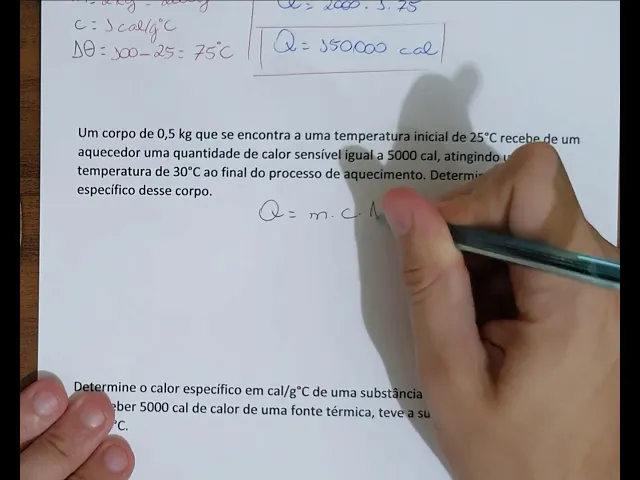 Q = 2000 . 1 . 75
c = 1 cal/g°C
Δθ = 100 - 25 = 75°C
Q = 150.000 cal
Um corpo de 0,5 kg que se encontra a uma temperatura inicial de 25°C recebe de um
aquecedor uma quantidade de calor sensível igual a 5000 cal, atingindo
temperatura de 30°C ao final do processo de aquecimento.
específico desse corpo.
Q = m . c .
Determine o calor específico em cal/g°C de uma substância
5000 cal de calor de uma fonte térmica, teve a